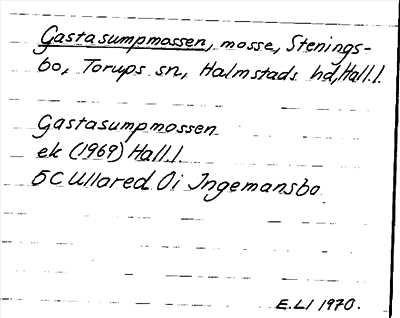 Gastasumpmossen, mosse, Stenings-
bo, Torups sn, Halmstads hd, Hall.l.
Gastasumpmossen
ek (1969) Hall.l.
5C Ullared Oi Ingemansbo
E.LI 1970.